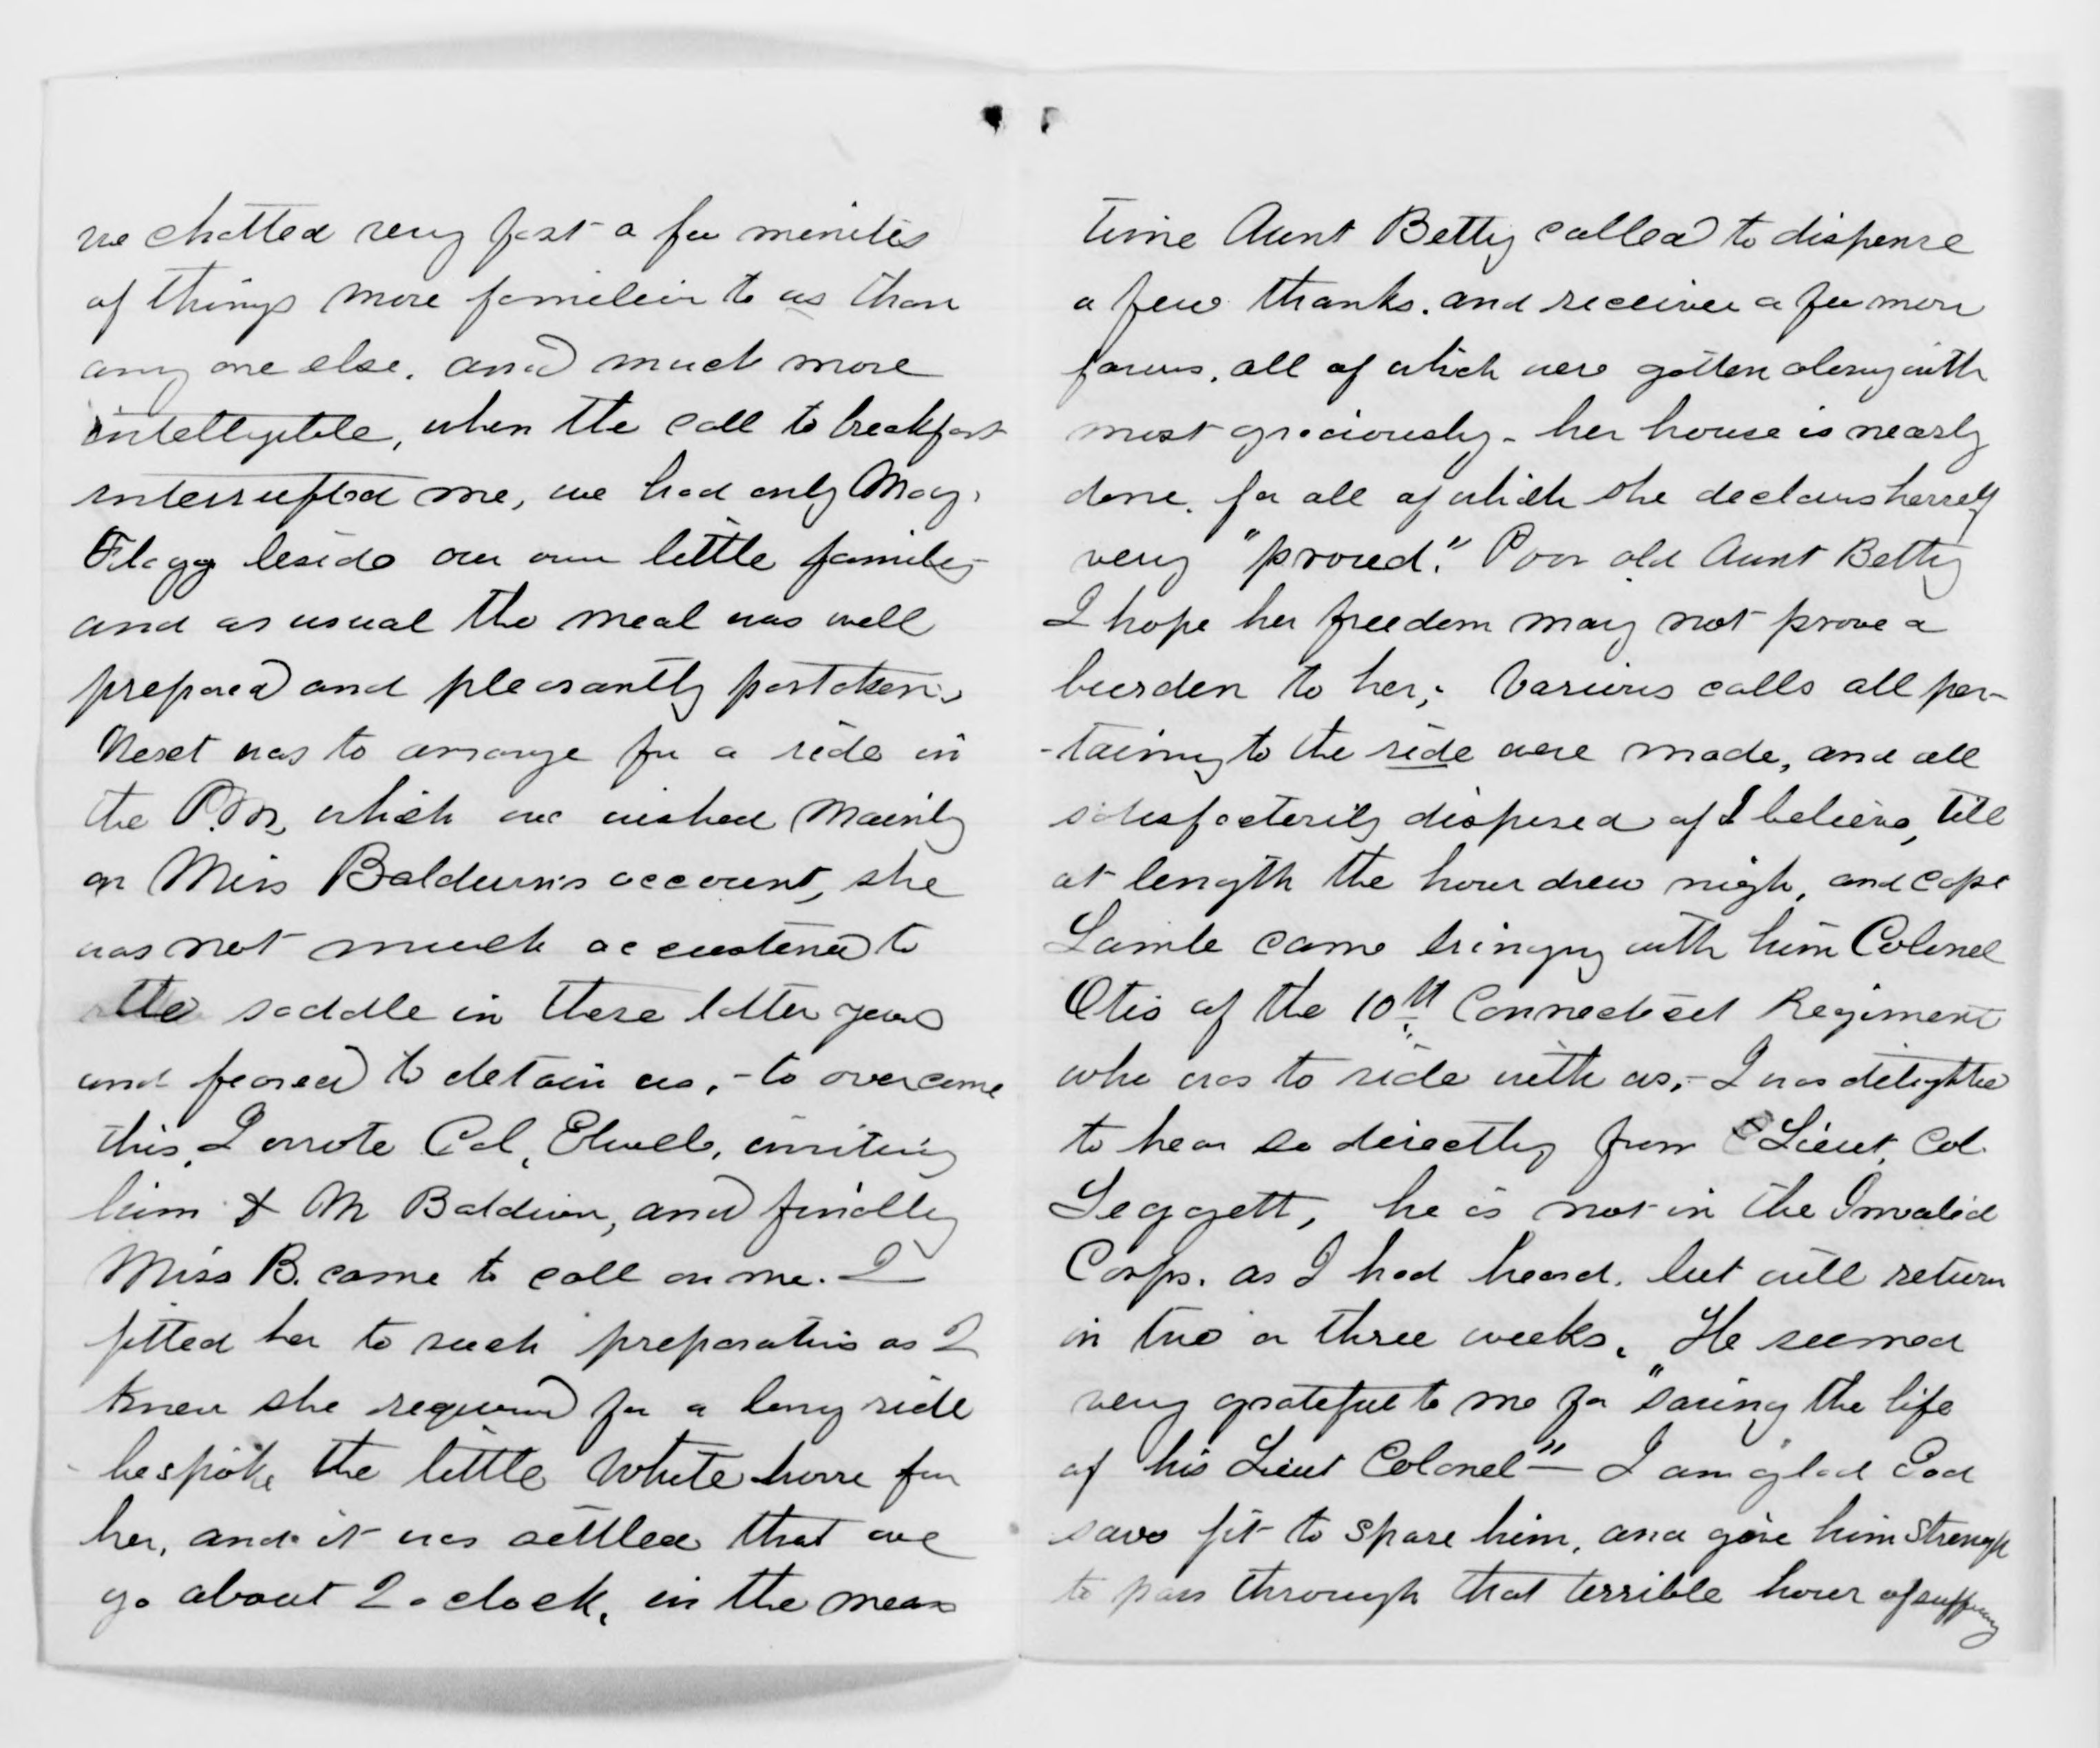 we chatted very fast a few minutes
of things more familiar to us than
any one else. and much more
intelligible, when the call to breakfast
interrupted me, we had only Maj.
Flagg beside our own little family
and as usual the meal was well
prepared and pleasantly partaken.
Next was to arrange for a ride in
the P.M. which we wished mainly
on Miss Baldwins account, she
was not much accustomed to
the saddle in these latter years
and feared to detain us, - to overcome
this, I wrote Col. Elwell, inviting
him & Mr Baldwin, and finally
Miss B. came to call on me. I
fitted her to such preparations as I
knew she required for a long ride
bespoke the little white horse for
her, and it was settled that we
go about 2 oclock, in the mean
time Aunt Betty called to dispense
a few thanks. and receive a few more
favors, all of which were gotten along with
most graciously - her house is nearly
done. for all of which she declares herself
very "proud." Poor old Aunt Betty
I hope her freedom may not prove a
burden to her; Various calls all per-
-taining to the ride were made, and all
satisfactorily disposed of I believe, till
at length the hour drew nigh, and Capt
Lamb came bringing with him Colonel
Otis of the 10th Connecticut Regiment
who was to ride with us, - I was delighted
to hear so directly from Lieut. Col.
Leggett, he is not in the Invalid
Corps. as I had heard. but will return
in two or three weeks. He seemed
very grateful to me for "saving the life
of his Lieut Colonel" - I am glad God
saw fit to spare him, and give him strength
to pass through that terrible hour of suffering